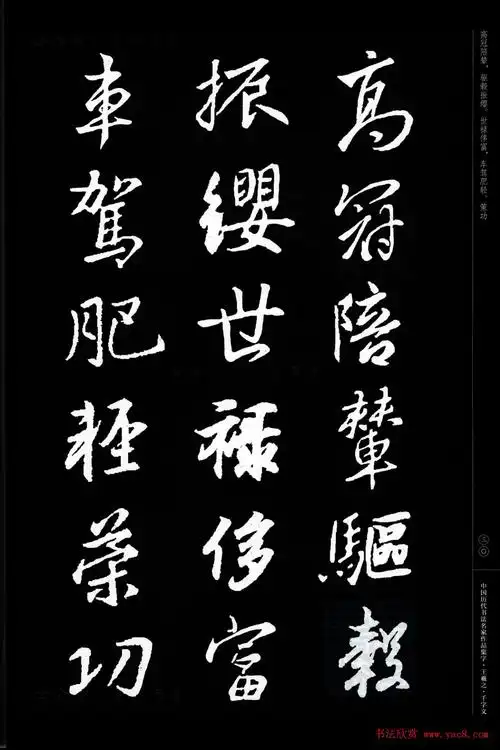 高冠陪輦驅轂
振纓世祿侈富
車駕肥輕策功
高冠陪辇。驱毂振缨。世禄侈富。车驾肥轻。策功
三〇
中国历代书法名家作品集字·王羲之·千字文
书法欣赏 www.yac8.com